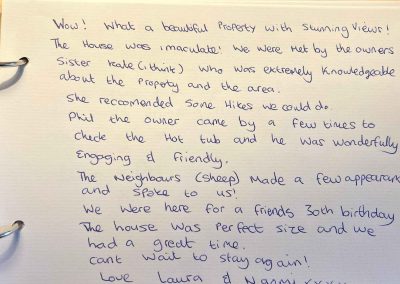 Wow! What a beautiful Property with stunning views!
The House was imaculate! We were met by the owners
Sister Kate (i think) who was extremely knowledgeable
about the Property and the area.
She reccomended some Hikes we could do.
Phil the owner came by a few times to
check the Hot tub and he was wonderfully
engaging & friendly.
The Neighbours (sheep) made a few appearan
and spoke to us!
We were here for a friends 30th birthday
The house was perfect size and we
had a great time.
cant wait to stay again!
Love Laura & Naomi xxxx